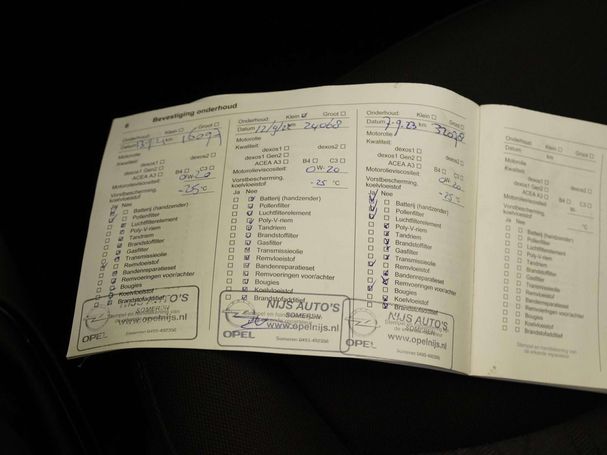 6 Bevestiging onderhoud
Onderhoud: Klein Groot
Datum km 16097
Motorolie
Kwaliteit: dexos1 dexos2
dexos1 Gen2
ACEA A3 B4 C3
Motorolieviscositeit: 0W-20
Vorstbescherming,
koelvloeistof -25 °C
Ja Nee
Batterij (handzender)
Pollenfilter
Luchtfilterelement
Poly-V-riem
Tandriem
Brandstoffilter
Gasfilter
Transmissieolie
Remvloeistof
Bandenreparatieset
Remvoeringen voor/achter
Bougies
Koelvloeistof
Brandstofadditief
NIJS AUTO'S
SOMEREN
www.opelnijs.nl
OPEL Someren 0493-492356
Onderhoud: Klein Groot
Datum 12/9/22 km 24068
Motorolie
Kwaliteit: dexos1 dexos2
dexos1 Gen2
ACEA A3 B4 C3
Motorolieviscositeit: 0W-20
Vorstbescherming,
koelvloeistof -25 °C
Ja Nee
Batterij (handzender)
Pollenfilter
Luchtfilterelement
Poly-V-riem
Tandriem
Brandstoffilter
Gasfilter
Transmissieolie
Remvloeistof
Bandenreparatieset
Remvoeringen voor/achter
Bougies
Koelvloeistof
Brandstofadditief
NIJS AUTO'S
SOMEREN
www.opelnijs.nl
OPEL Someren 0493-492356
Onderhoud: Klein Groot
Datum 7-9-23 km
Motorolie
Kwaliteit: dexos1 dexos2
dexos1 Gen2
ACEA A3 B4 C3
Motorolieviscositeit: 0W-20
Vorstbescherming,
koelvloeistof -25 °C
Ja Nee
Batterij (handzender)
Pollenfilter
Luchtfilterelement
Poly-V-riem
Tandriem
Brandstoffilter
Gasfilter
Transmissieolie
Remvloeistof
Bandenreparatieset
Remvoeringen voor/achter
Bougies
Koelvloeistof
Brandstofadditief
NIJS AUTO'S
SOMEREN
www.opelnijs.nl
OPEL Someren 0493-492356
Onderhoud:
Datum km
Motorolie
Kwaliteit: dexos1
dexos1 Gen2
ACEA A3 B4
Motorolieviscositeit: W-
Vorstbescherming,
koelvloeistof
Ja Nee
Batterij (handzender)
Pollenfilter
Luchtfilterelement
Poly-V-riem
Tandriem
Brandstoffilter
Gasfilter
Transmissieolie
Remvloeistof
Bandenreparatieset
Remvoeringen voor/achter
Bougies
Koelvloeistof
Brandstofadditief
Stempel en handtekening van
de erkende reparateur